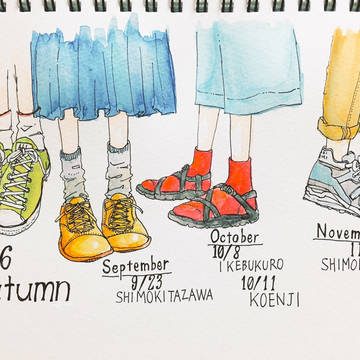 6
utumn
September
9/23
SHIMOKITAZAWA
October
10/8
IKEBUKURO
10/11
KOENJI
Novem
11
SHIMO